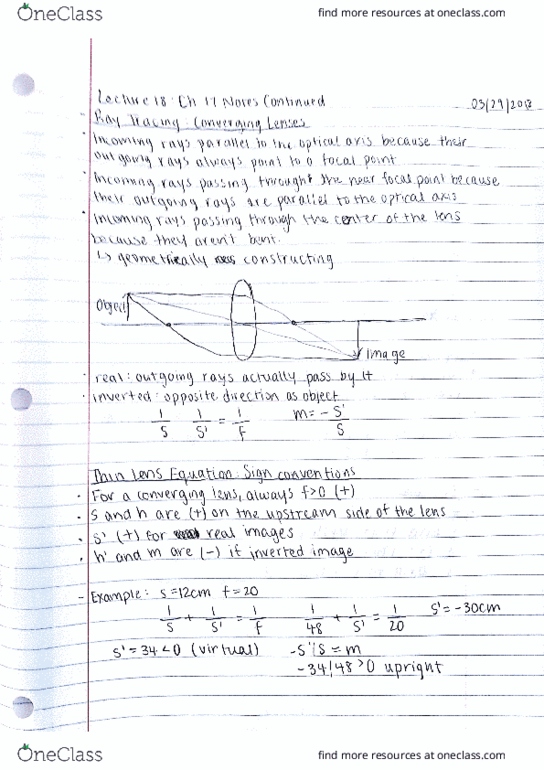 OneClass
find more resources at oneclass.com
Lecture 18: Ch 17 Notes Continued
03/29/2018
Ray Tracing: Converging Lenses
Incoming rays parallel to the optical axis because their
outgoing rays always point to a focal point
Incoming rays passing throught the near focal point because
their outgoing rays are parallel to the optical axis
Incoming rays passing through the center of the lens
because they aren't bent.
↳ geometrically constructing
Object
Image
real: outgoing rays actually pass by it
inverted: opposite direction as object
1/S 1/S' = 1/f m = -S'/S
Thin Lens Equation: Sign conventions
For a converging lens, always f>0 (+)
S and h are (+) on the upstream side of the lens
S' (+) for real images
h' and m are (-) if inverted image
- Example: s=12cm f=20
1/S + 1/S' = 1/f 1/48 + 1/S' = 1/20 S' = -30cm
S' = 34 < 0 (virtual) -S'/S = m
-34/48 > 0 upright
OneClass
find more resources at oneclass.com